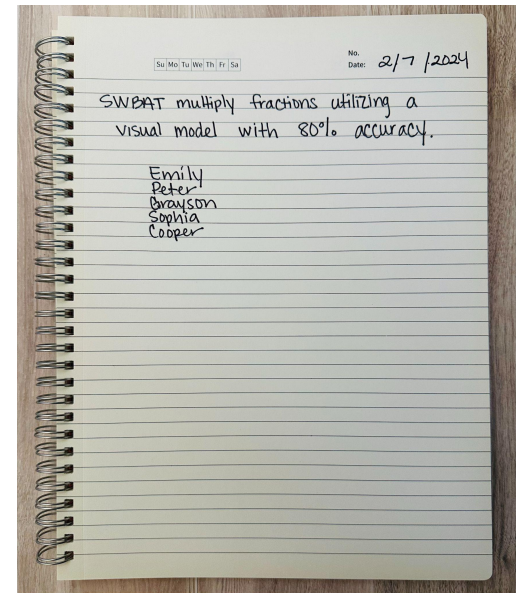 No.
Su Mo Tu We Th Fr Sa Date: 2/7/2024
SWBAT multiply fractions utilizing a
visual model with 80% accuracy.
Emily
Peter
Grayson
Sophia
Cooper